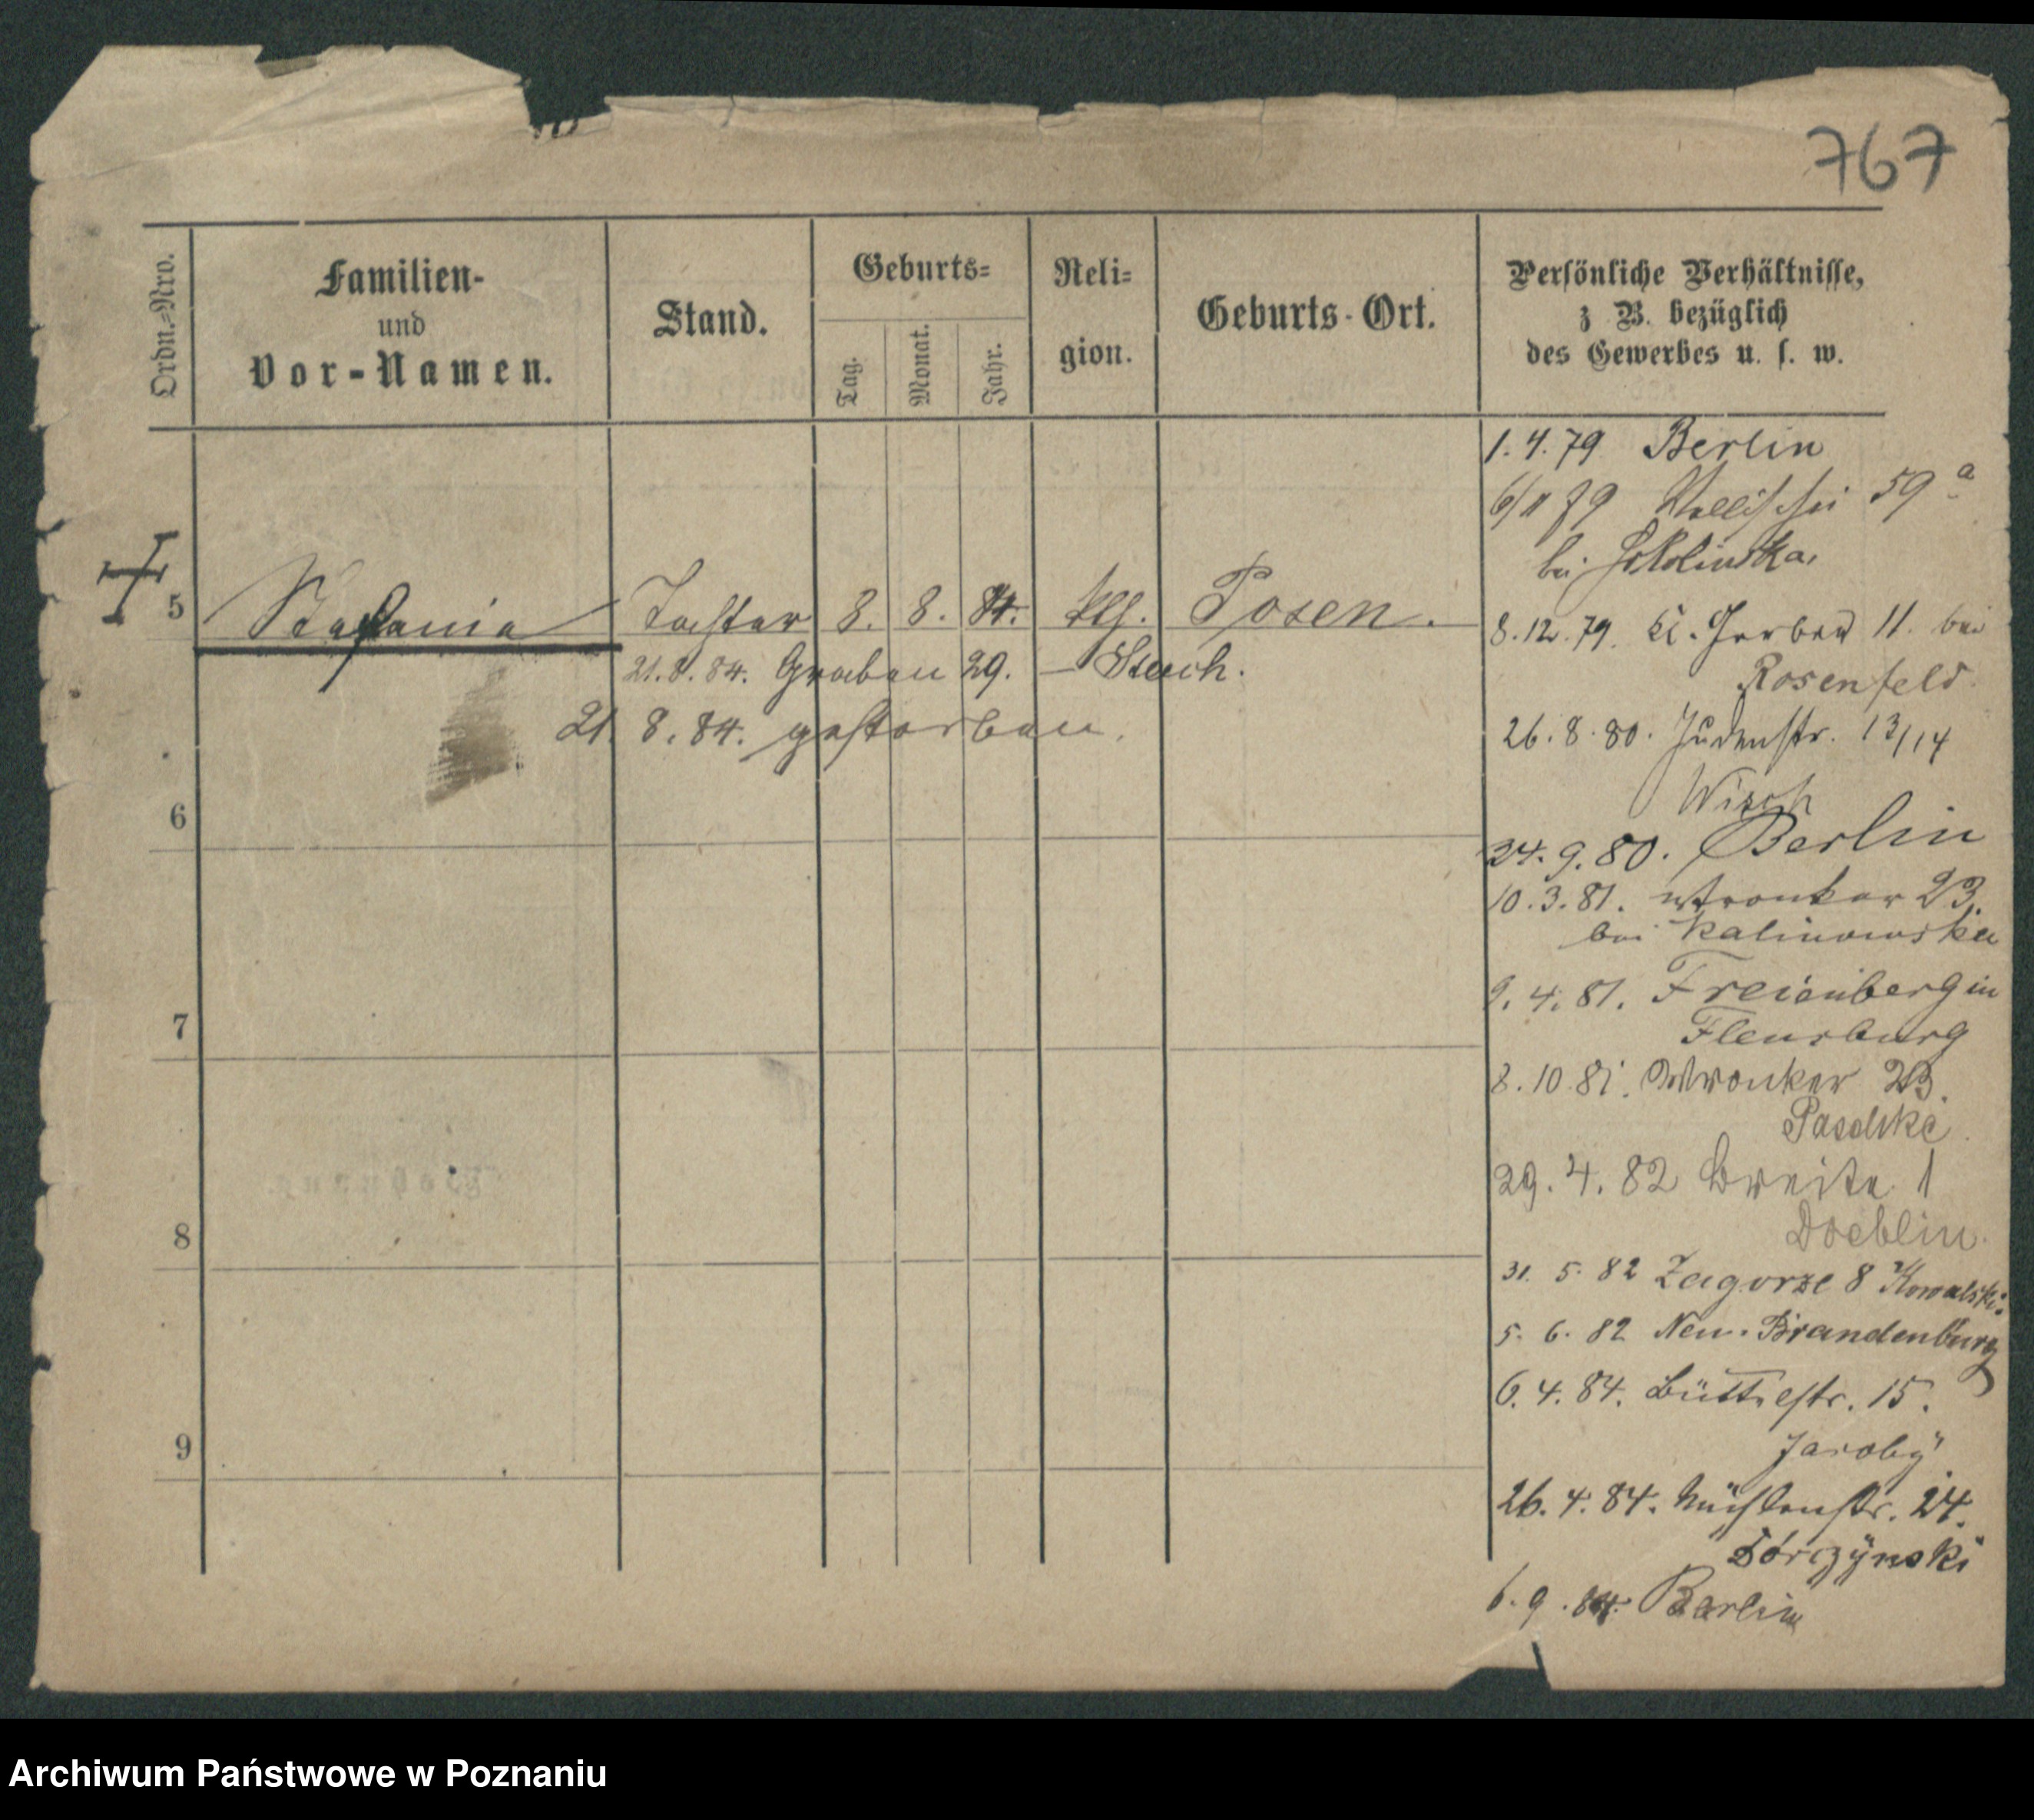 767
Ordn.-Nro.
Familien-
und
Vor-Namen.
Stand.
Geburts-
Tag.
Monat.
Jahr.
Reli-
gion.
Geburts-Ort.
Persönliche Verhältnisse,
z B. bezüglich
des Gewerbes u. s. w.
5 Stefania Tochter 8. 8. 84. Posen.
21.8.84. Graben 29. –
21. 8. 84. gestorben.
6
7
8
9
1.4.79 Berlin
6/11 79 Wallischei 59a
bei
8.12.79. Kl. Gerber 11. bei
Rosenfeld.
26.8.80. Judenstr. 13/14
Wisch
24.9.80. Berlin
10.3.81. Wronker 23.
bei Kalinowska
9.4.81. Freienberg in
Flensburg
8.10.81. Wronker 23.
Paschke.
29.4.82 Breite 1
Doeblin.
31. 5. 82 Zagorze 8 Kowalski.
5. 6. 82 Neu-Brandenburg
6. 4. 84. Büttelstr. 15.
Jacoby
26. 4. 84. Mühlenstr. 24.
6. 9. 84. Berlin
Archiwum Państwowe w Poznaniu